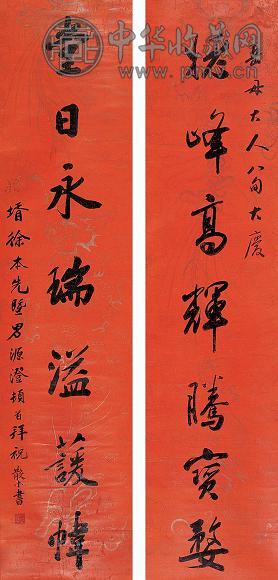 中华收藏网
岳母大人八旬大慶
峰高輝騰寶婺
堂日永瑞溢蘐幃
壻徐本先暨男源澄頓首拜祝 書